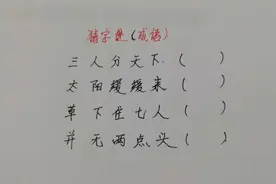 猜字迷(成语)
三人分天下.(　)
太阳缓缓来(　)
草下在七人(　)
并无两点头(　)